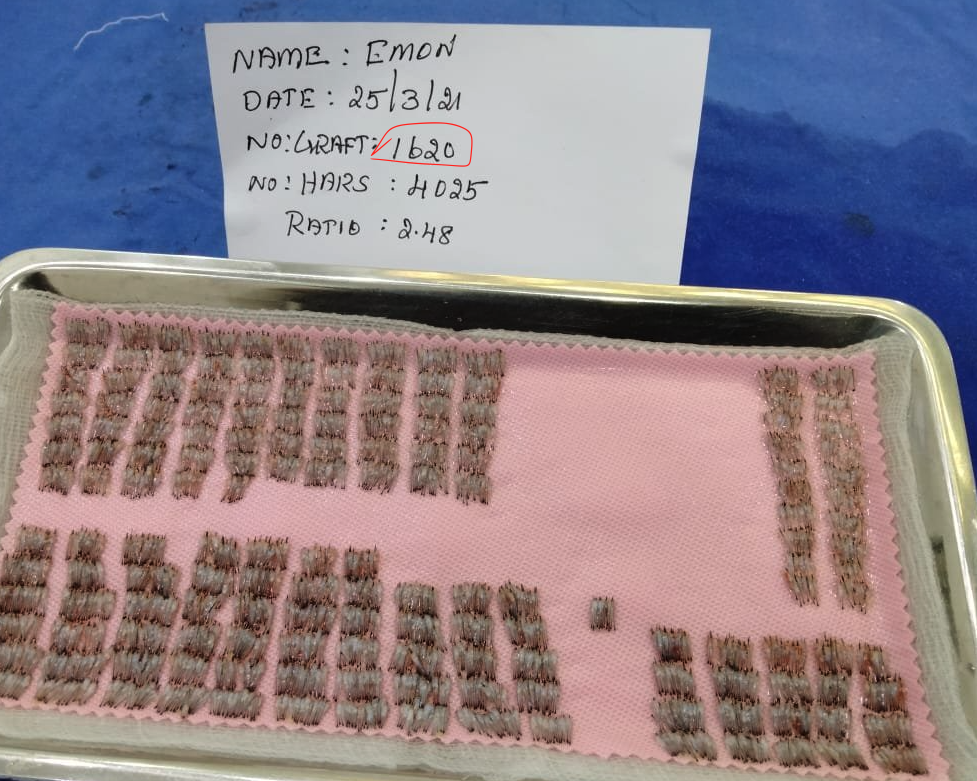 NAME : EMON
DATE : 25/3/21
NO:GRAFT: 1620
NO: HARS : 4025
RATIO : 2.48